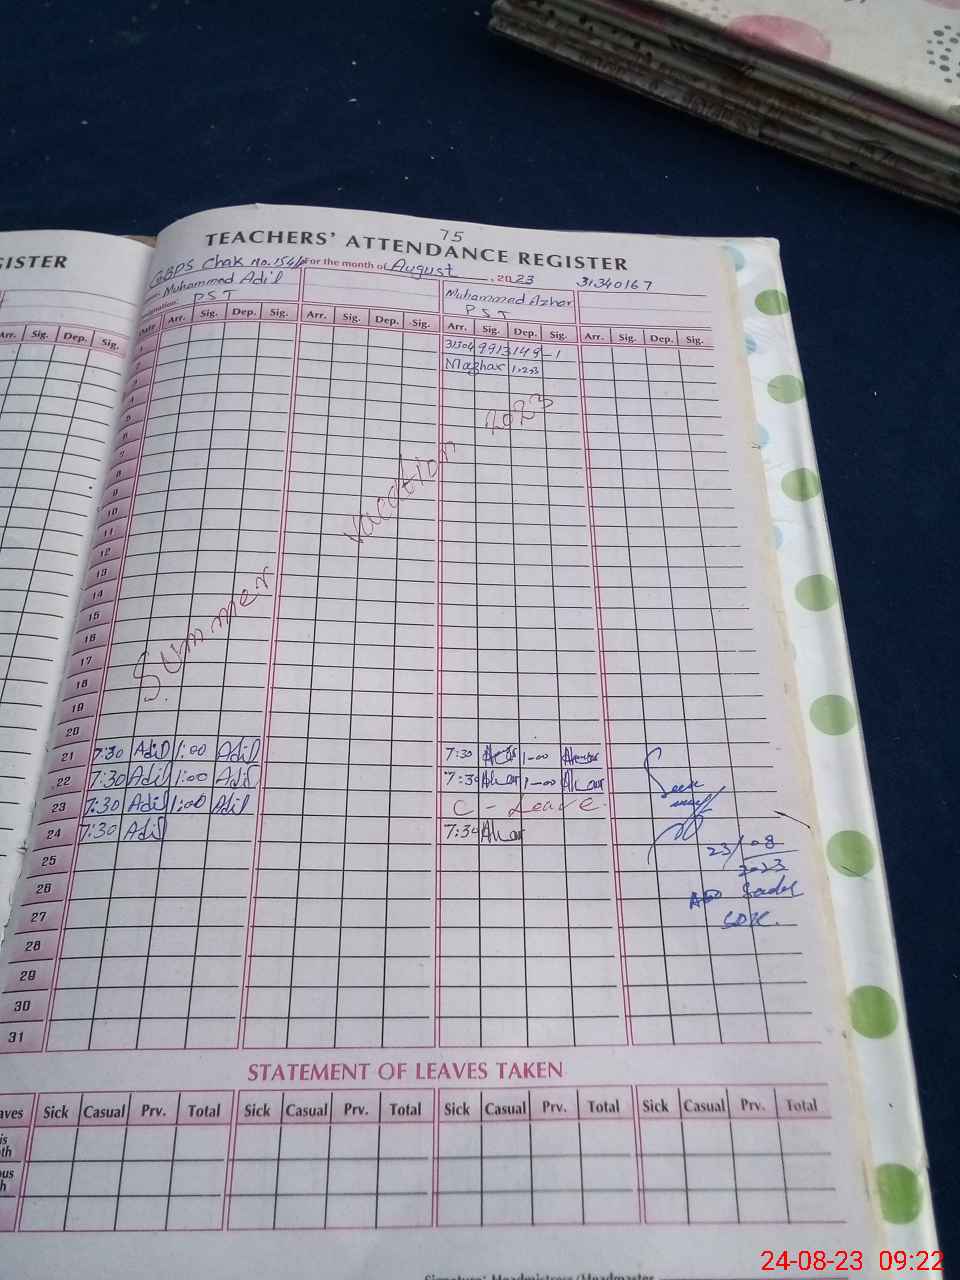 75
ISTER
TEACHERS' ATTENDANCE REGISTER
GBPS Chak No.154/ For the month of August, 2023 31340167
Muhammad Adil Muhammad Azhar
Designation: PST PST
Arr. Sig. Dep. Sig. Date Arr. Sig. Dep. Sig. Arr. Sig. Dep. Sig. Arr. Sig. Dep. Sig. Arr. Sig. Dep. Sig.
1
2
3
4
5
6
7
8
9
10
11
12
13
14
15
16
17
18
19
20
Summer Vacation 2023
21 7:30 Adil 1:00 Adil 7:30 1-00
22 7:30 Adil 1:00 Adil 7:30 1-00
23 7:30 Adil 1:00 Adil C - Leave
24 7:30 Adil 7:30
Seen
23/08
2023
25
26
27
28
29
30
31
STATEMENT OF LEAVES TAKEN
aves Sick Casual Prv. Total Sick Casual Prv. Total Sick Casual Prv. Total Sick Casual Prv. Total
is
th
ous
h
24-08-23 09:22